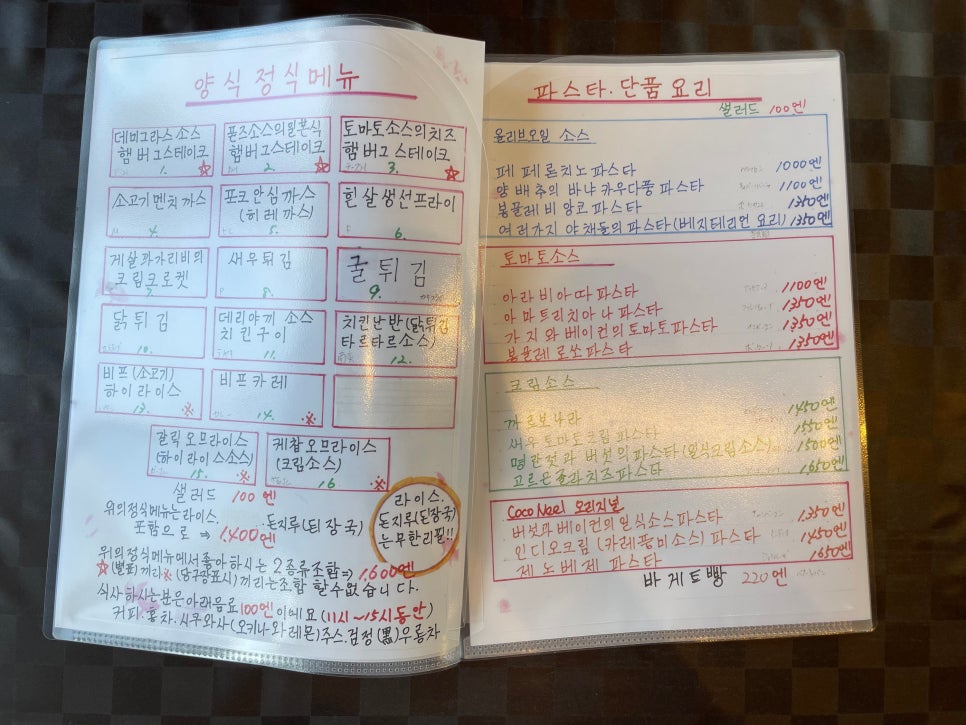 양식정식메뉴
데미그라스소스
햄버그스테이크
1.
폰즈소스의일본식
햄버그스테이크
2.
토마토소스의치즈
햄버그스테이크
3.
소고기멘치까스
4.
포크안심까스
(히레까스)
5.
흰살생선프라이
6.
게살과가리비의
크림크로켓
7.
새우튀김
8.
굴튀김
9.
닭튀김
10.
데리야끼 소스
치킨구이
11.
치킨난반(닭튀김
타르타르소스)
12.
비프(소고기)
하이라이스
13. ※
비프카레
14. ※
갈릭오므라이스
(하이라이스소스)
15. ※
케찹오므라이스
(크림소스)
16. ※
샐러드 100엔
위의정식메뉴는라이스. 돈지루(된장국)
포함으로 ⇒ 1,400엔
라이스.
돈지루(된장국)
는무한리필!!
위의정식메뉴에서좋아하시는2종류조합⇒ 1,600엔
☆(별표)끼리※(당구장표시)끼리는조합할수없습니다.
식사하시는분은아래음료100엔이에요(11시~15시동안)
커피.홍차.시쿠와사(오키나와레몬)주스.검정(黒)우롱차
파스타.단품요리
샐러드 100엔
올리브오일 소스
페페론치노파스타 1000엔
양배추의 바냐카우다풍파스타 1100엔
봉골레비앙코파스타 1350엔
여러가지야채들의파스타(베지테리언요리) 1350엔
토마토소스
아라비아따파스타 1100엔
아마트리치아나파스타 1350엔
가지와베이컨의토마토파스타 1350엔
봉골레로쏘파스타 1350엔
크림소스
까르보나라 1450엔
새우토마토크림파스타 1550엔
명란젓과버섯의파스타(일식크림소스) 1500엔
고르곤졸라치즈파스타 1650엔
Coco Neel 오리지널
버섯과베이컨의일식소스파스타 1350엔
인디오크림(카레풍미소스)파스타 1450엔
제노베제파스타 1650엔
바게트빵 220엔